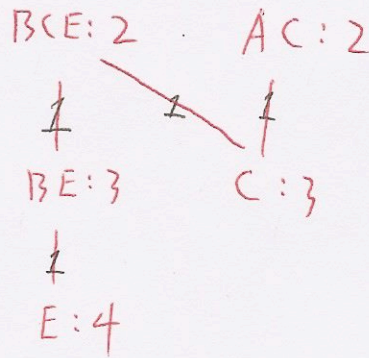 BCE:2 AC:2
1 1 1
BE:3 C:3
1
E:4